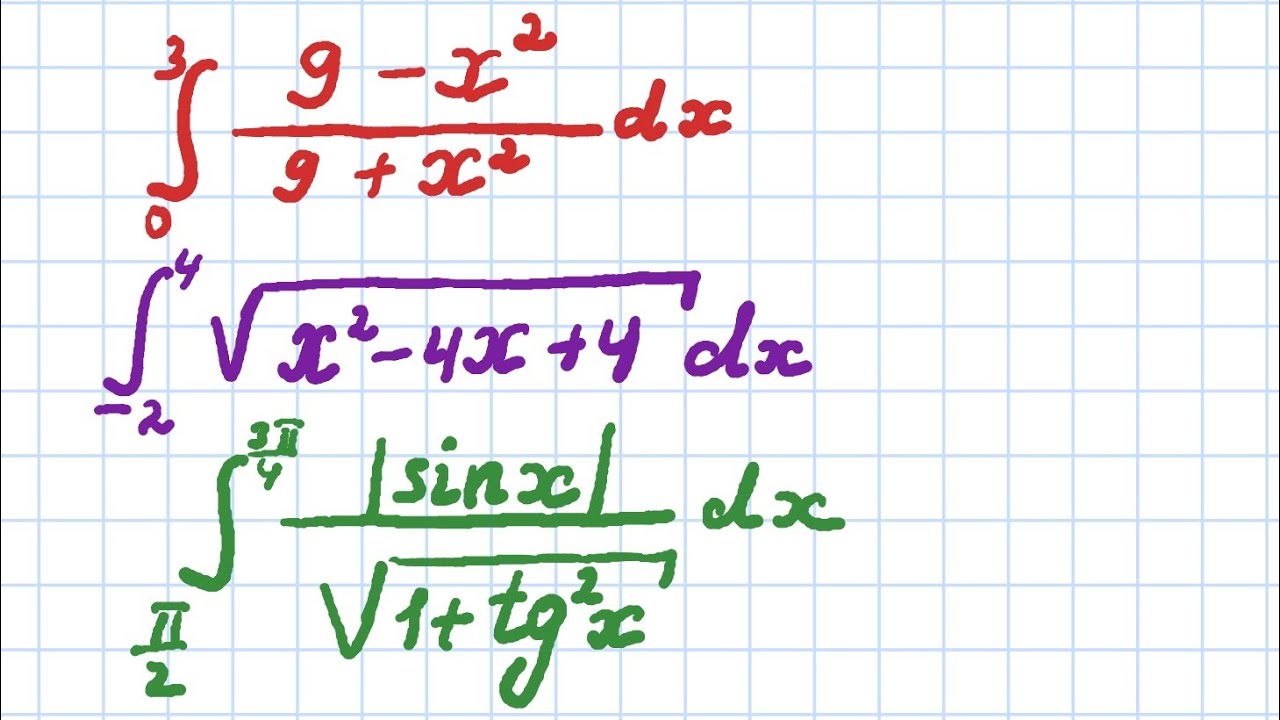 ∫₀³ (9 − x²)/(9 + x²) dx
∫₋₂⁴ √(x² − 4x + 4) dx
∫_{π/2}^{3π/4} |sin x|/√(1 + tg²x) dx